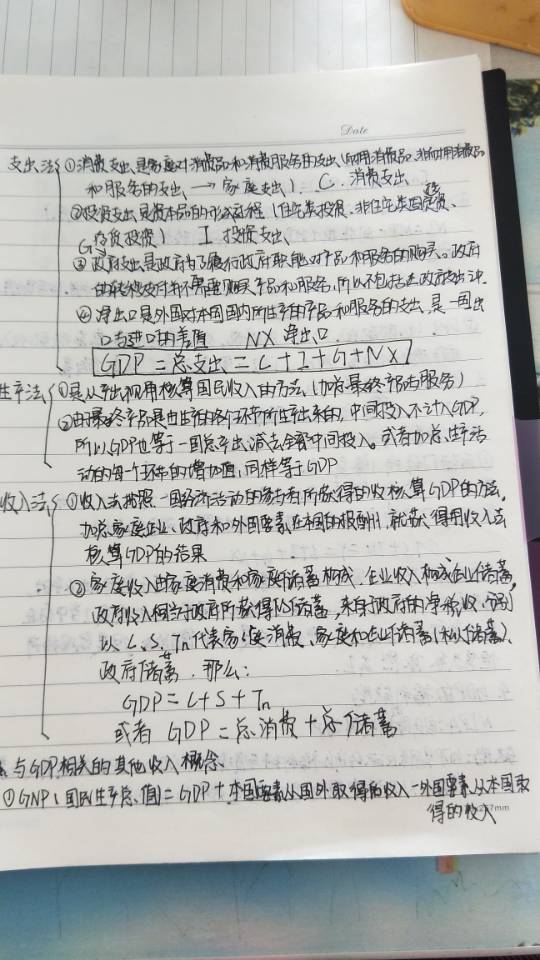 Date
支出法 ①消费支出,是家庭对消费品和消费服务的支出(耐用消费品、非耐用消费品
和服务的支出 → 家庭支出) C.消费支出
②投资支出是资本品的形成过程(住宅类投资、非住宅类固定投资、
存货投资) I 投资支出
G ③政府支出是政府为了履行政府职能对产品和服务的购买。政府
的转移支付并不需要购买产品和服务,所以不包括在政府支出中.
④净出口是外国对本国国内所生产的产品和服务的支出,是一国出
口与进口的差值 NX 净出口.
GDP=总支出=C+I+G+NX
生产法 ①是从产出视用核算国民收入的方法(加总最终产品与服务)
②由最终产品是由生产的各个环节所生产出来的,中间投入不计入GDP,
所以GDP也等于一国总产出减去全部中间投入。或者加总生产活
动的每个环节的增加值,同样等于GDP
收入法 ①收入法按照一国经济活动的参与者所获得的收核算GDP的方法,
加总家庭企业、政府和外国要素在本国的报酬,就获得用收入法
核算GDP的结果
②家庭收入由家庭消费和家庭储蓄构成,企业收入构成企业储蓄,
政府收入相当于政府所获得储蓄,来自于政府的净税收,分别
以C、S、Tn代表家庭消费、家庭和企业储蓄(私人储蓄)、
政府储蓄.那么:
GDP=C+S+Tn
或者 GDP=总消费+总储蓄
与GDP相关的其他收入概念.
①GNP(国民生产总值)=GDP+本国要素从国外取得的收入-外国要素从本国取
得的收入